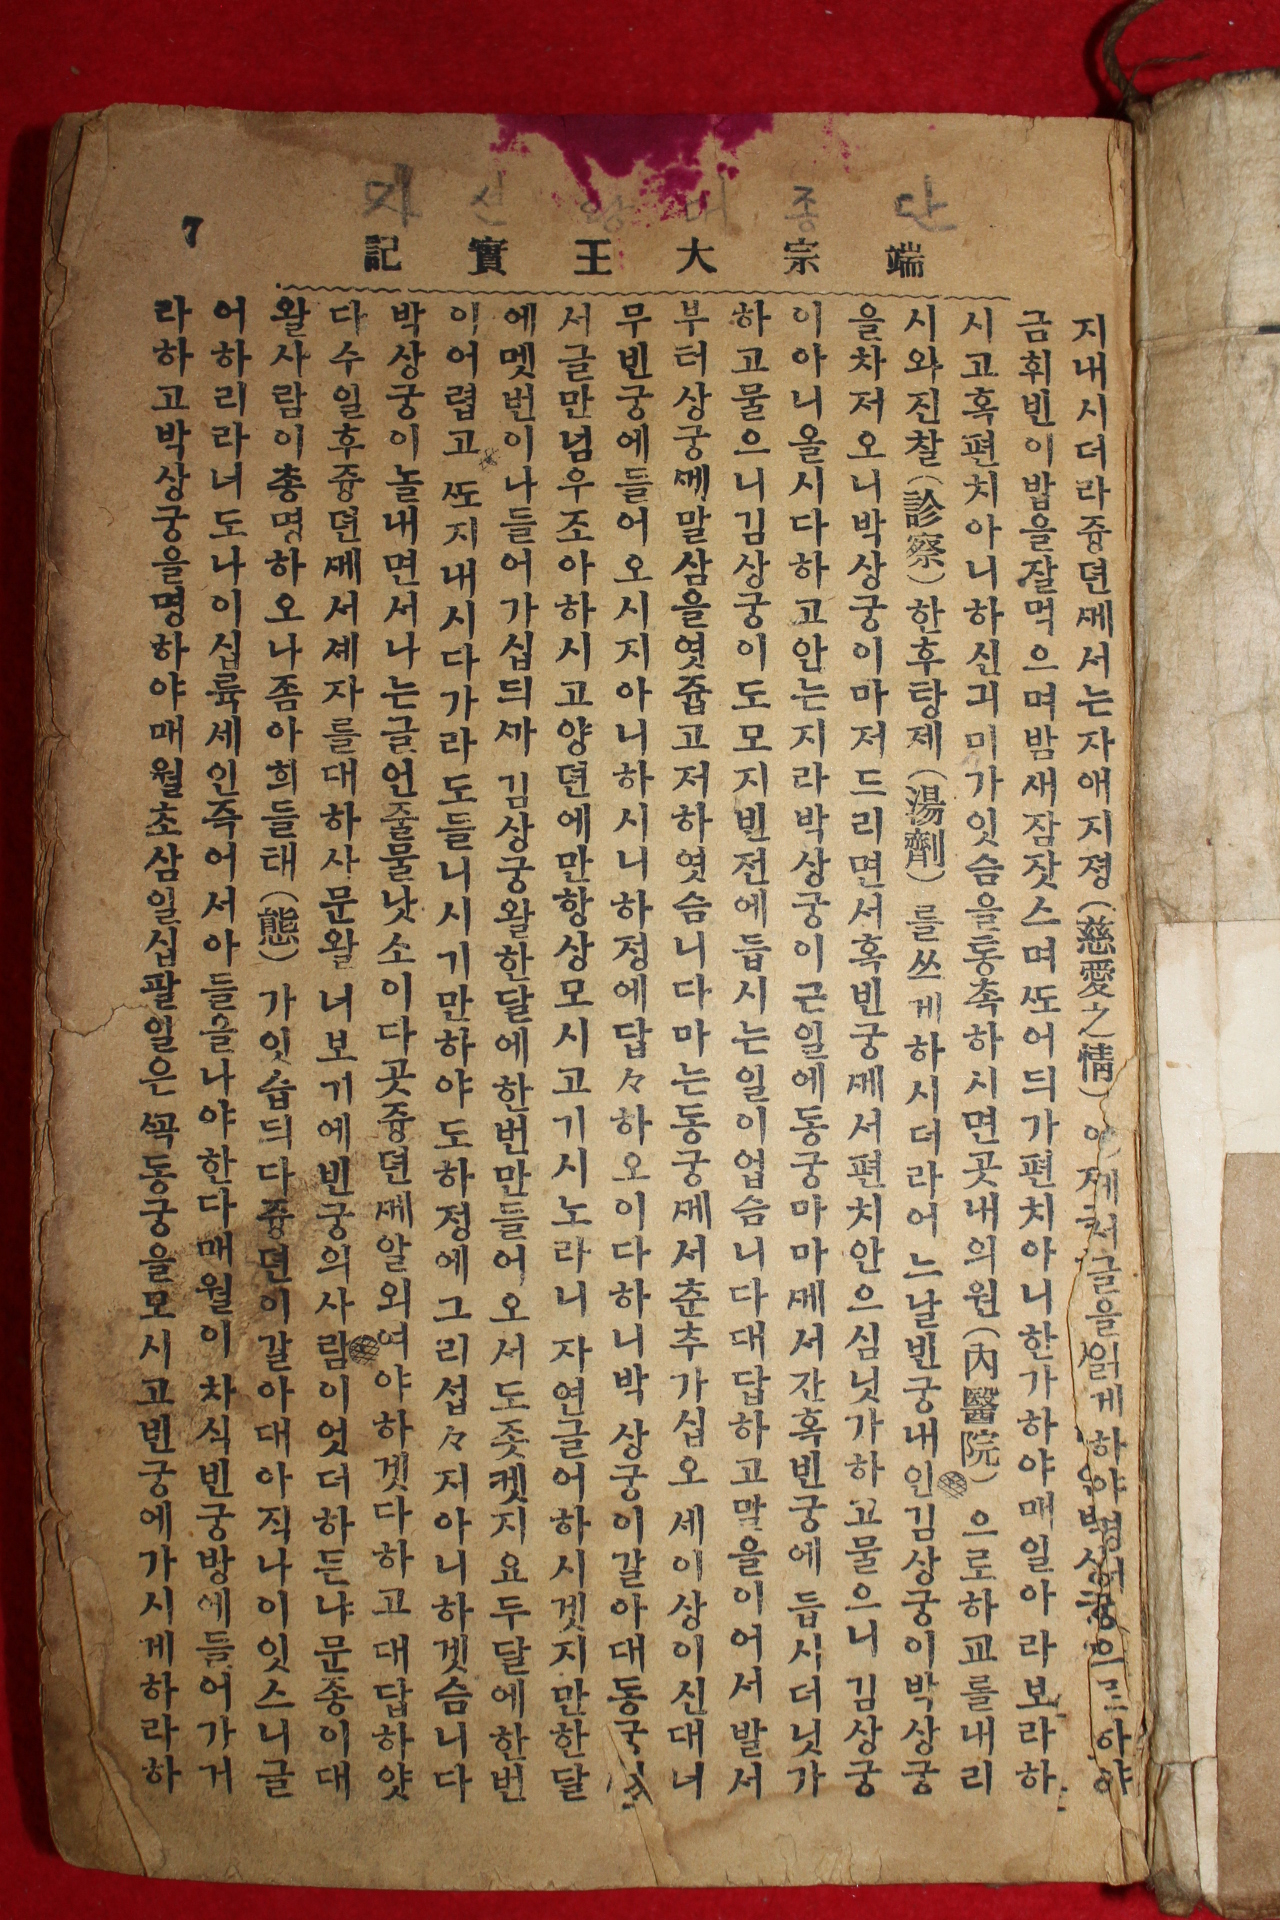 단종대왕신
記實王大宗端
7
지내시더라즁뎐ᄭᅦ서는자애지졍(慈愛之情)이제서글을읽게하야
금휘빈이밥을잘먹으며밤새잠잣스며ᄯᅩ어듸가편치아니한가하야매일아라보라하
시고혹편치아니하신긔미가잇슴을통촉하시면곳내의원(內醫院)으로하교를내리
시와진찰(診察)한후탕제(湯劑)를쓰게하시더라어느날빈궁내인김상궁이박상궁
을차저오니박상궁이마저드리면서혹빈궁ᄭᅦ서편치안으심닛가하고물으니김상궁
이아니올시다하고안는지라박상궁이근일에동궁마마ᄭᅦ서잔혹빈궁에듭시더닛가
하고물으니김상궁이도모지빈전에듭시는일이업슴니다대답하고말을이어서발서
부터상궁ᄭᅦ말삼을엿쥽고저하엿슴니다마는동궁ᄭᅦ서춘추가십오세이상이신대너
무빈궁에들어오시지아니하시니하정에답々하오이다하니박상궁이갈아대동궁
서글만넘우조아하시고양뎐에만항상모시고기시노라니자연글어하시겟지만한달
에멧번이나들어가십듸ᄭᅡ김상궁왈한달에한번만들어오서도좃켓지요두달에한번
이어렵고ᄯᅩ지내시다가라도들니시기만하야도하정에그리섭々지아니하겟슴니다
박상궁이놀내면서나는글언줄물낫소이다곳즁뎐ᄭᅦ알외여야하겟다하고대답하얏
다수일후즁뎐ᄭᅦ서셰자를대하사문왈너보기에빈궁의사람이엇더하든냐문종이대
왈사람이총명하오나좀아희들태(態)가잇습듸다즁뎐이갈아대아직나이잇스니글
어하리라너도나이십륙세인즉어서아들을나야한다매월이차식빈궁방에들어가거
라하고박상궁을명하야매월초삼일십팔일은ᄭᅩᆨ동궁을모시고빈궁에가시게하라하